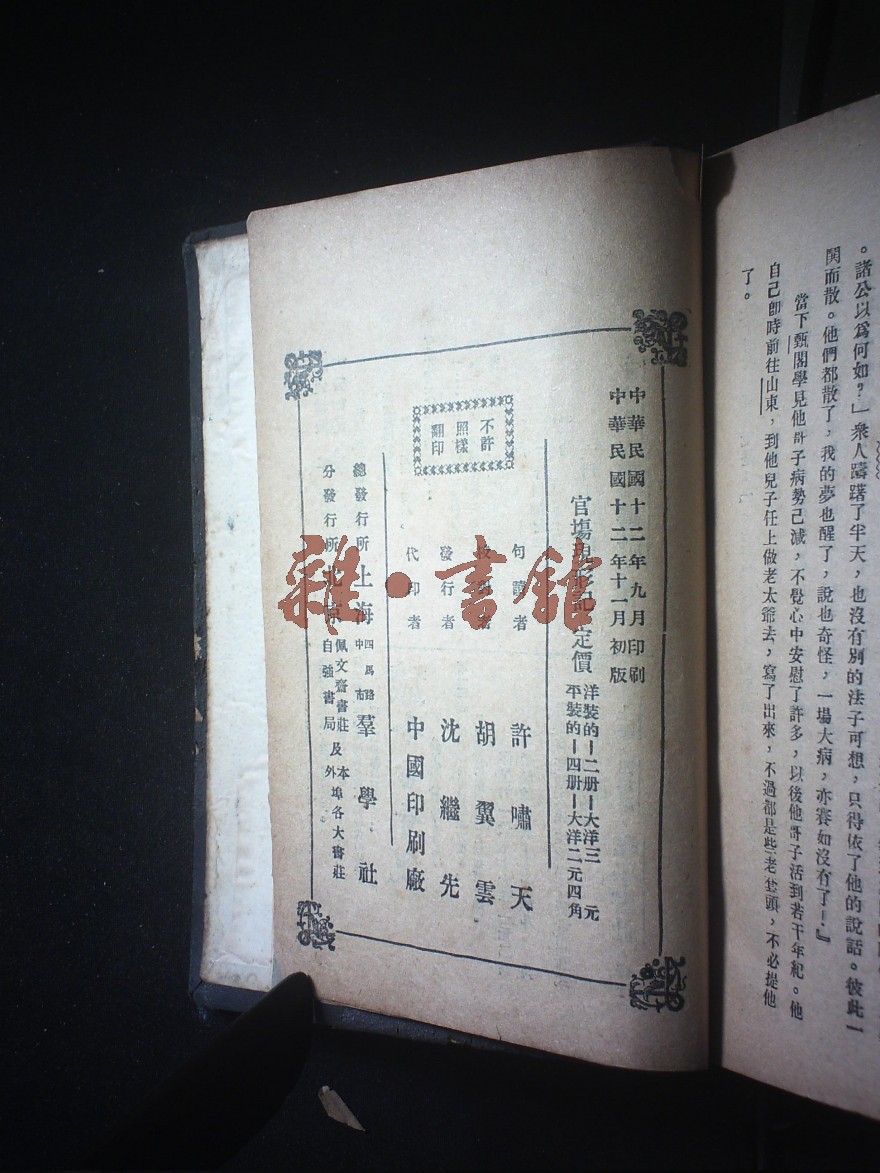 。諸公以爲何如？」衆人躊躇了半天，也沒有別的法子可想，只得依了他的說話。彼此一
閧而散。他們都散了，我的夢也醒了，說也奇怪，一場大病，亦賽如沒有了！』
當下甄閣學見他哥子病勢已減，不覺心中安慰了許多，以後他哥子活到若干年紀。他
自己卽時前往山東，到他兒子任上做老太爺去，寫了出來，不過都是些老套頭，不必提他
了。
中華民國十二年九月印刷
中華民國十二年十一月初版
官場現形記 定價
洋裝的－二册－大洋三元
平裝的－四册－大洋二元四角
句讀者 許嘯天
者 胡翼雲
發行者 沈繼先
代印者 中國印刷廠
不許
照樣
翻印
總發行所 上海 四馬路中市 羣學社
分發行所 北京 佩文齋書莊及本
自強書局 外埠各大書莊
雜·書館